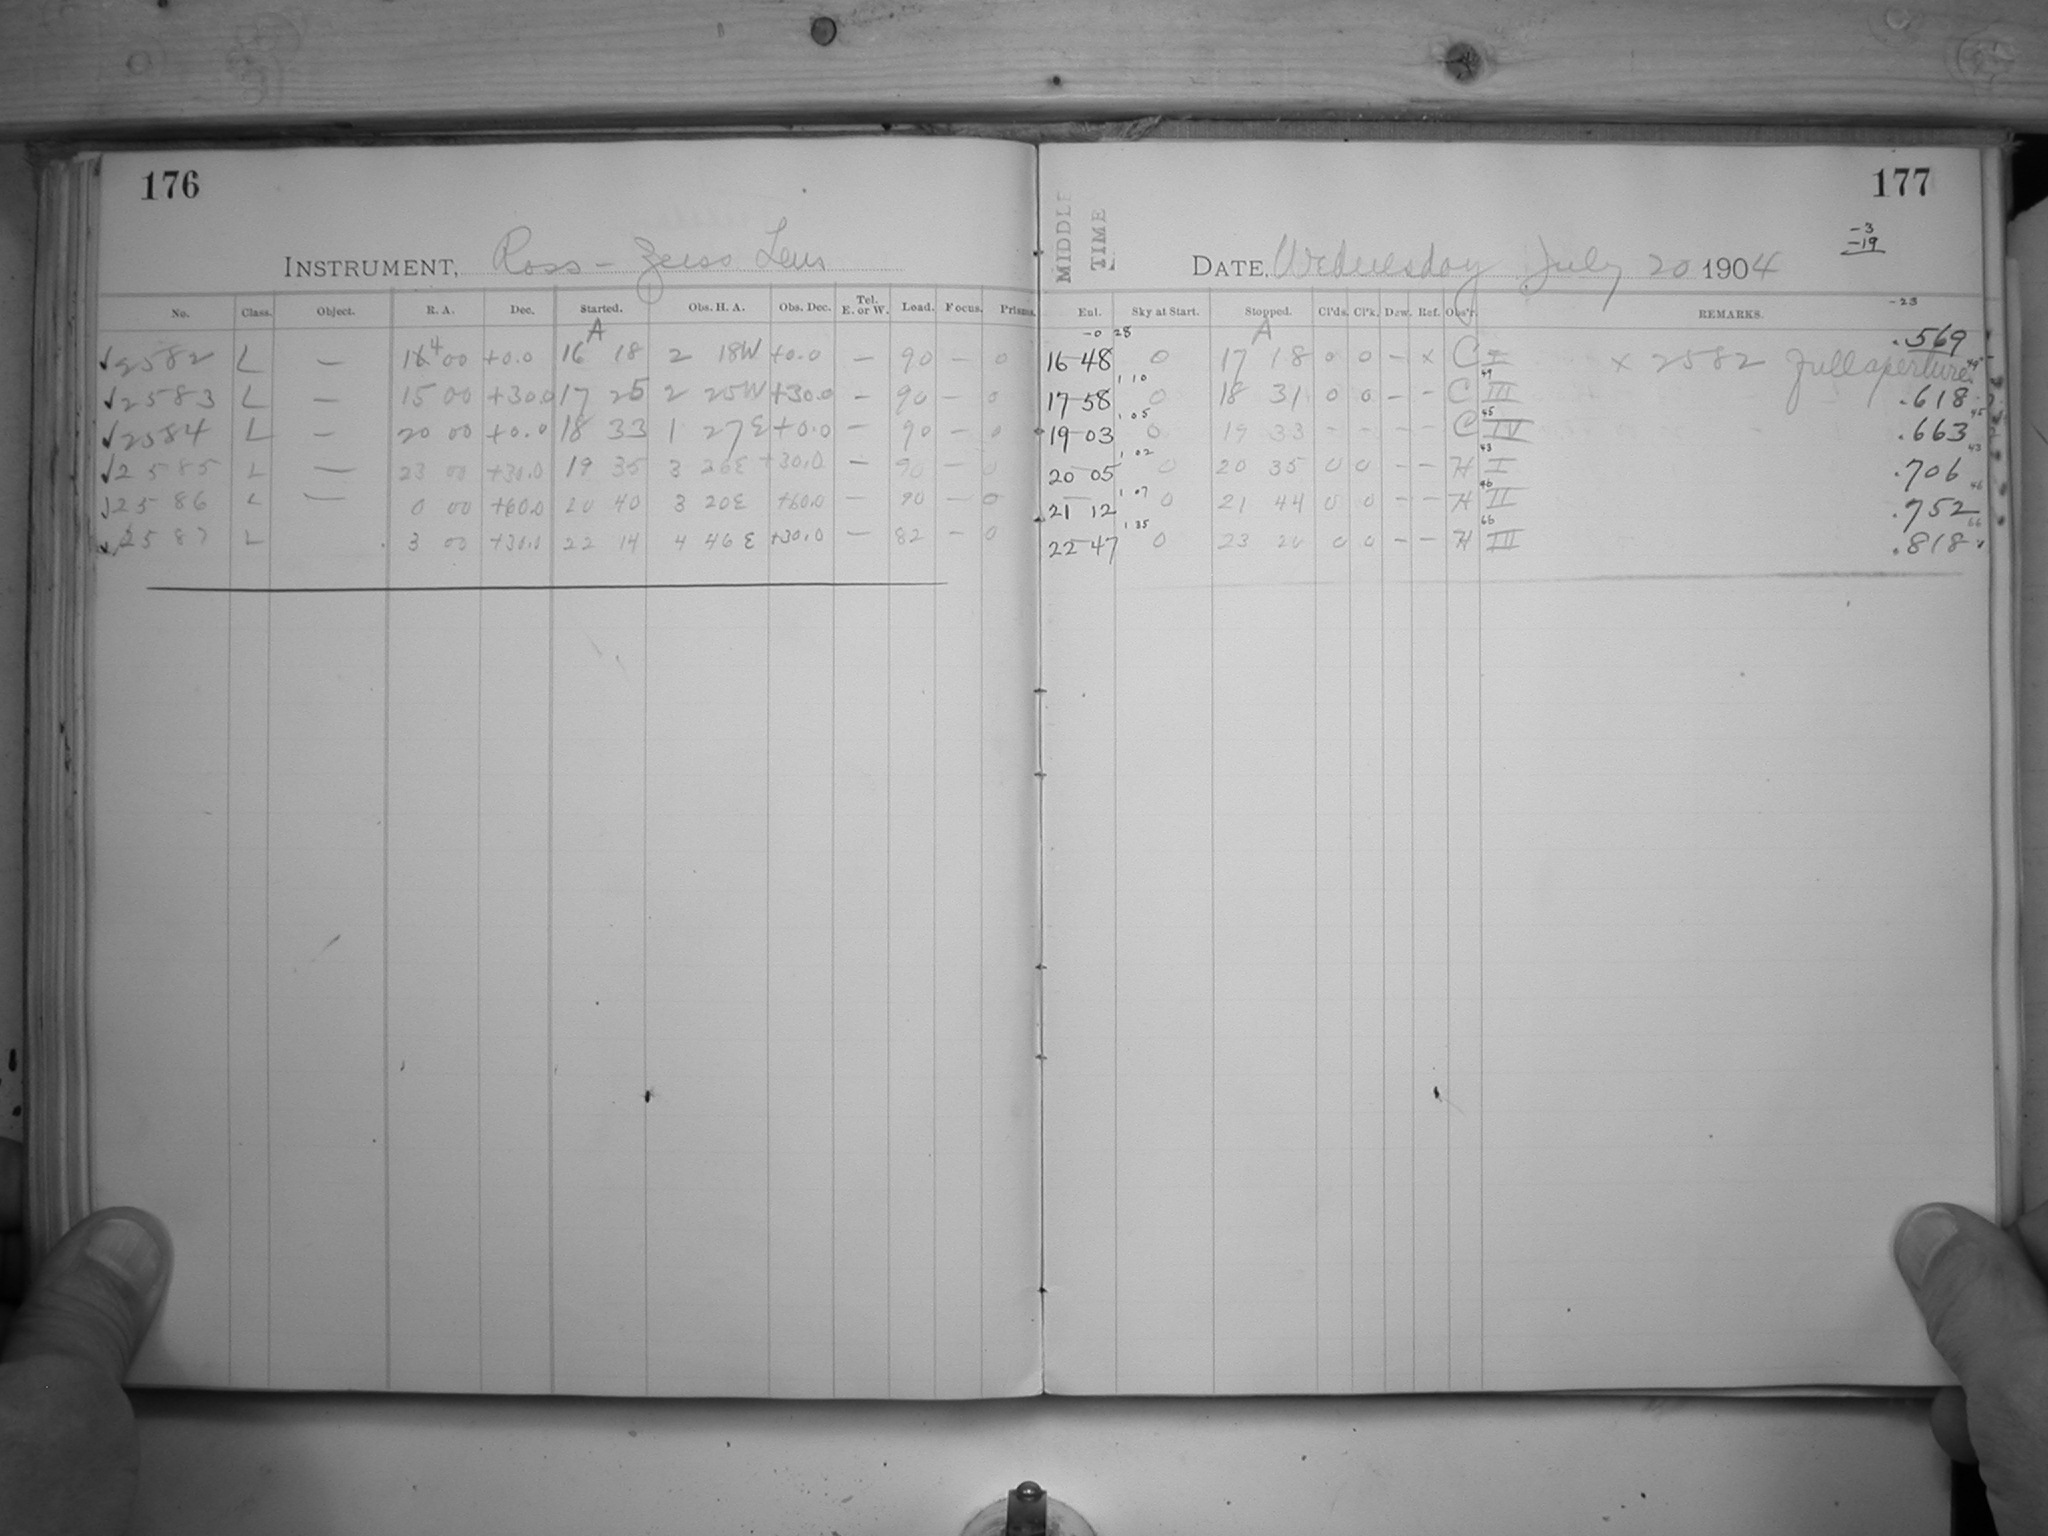 176
INSTRUMENT, Ross-Zeiss Lens
No. Class. Object. R. A. Dec. Started. Obs. H. A. Obs. Dec. Tel. E. or W. Load. Focus. Prisms.
A
√2582 L — 14 00 +0.0 16 18 2 18W +0.0 — 90 — 0
√2583 L — 15 00 +30.0 17 25 2 25W +30.0 — 90 — 0
√2584 L — 20 00 +0.0 18 33 1 27E +0.0 — 90 — 0
√2585 L — 23 00 +30.0 19 35 3 26E +30.0 — 90 — 0
√2586 L — 0 00 +60.0 20 40 3 20E +60.0 — 90 — 0
√2587 L 3 00 +30.0 22 14 4 46E +30.0 — 82 — 0
177
MIDDLE
TIME
DATE, Wednesday July 20 1904
-3
-19
-23
Eul. Sky at Start. Stopped. Cl'ds. Cl'k. Dew. Ref. Obs'r. REMARKS.
-0 28 A
16 48 0 17 18 0 0 — x C I x 2582 Full aperture .569
1 10 49 49
17 58 0 18 31 0 0 — — C III .618
1 05 45 45
19 03 0 19 33 — — — — C IV .663
1 02 43 43
20 05 0 20 35 0 0 — — H I .706
1 07 46 46
21 12 0 21 44 0 0 — — H II .752
1 35 66 66
22 47 0 23 20 0 0 — — H III .818